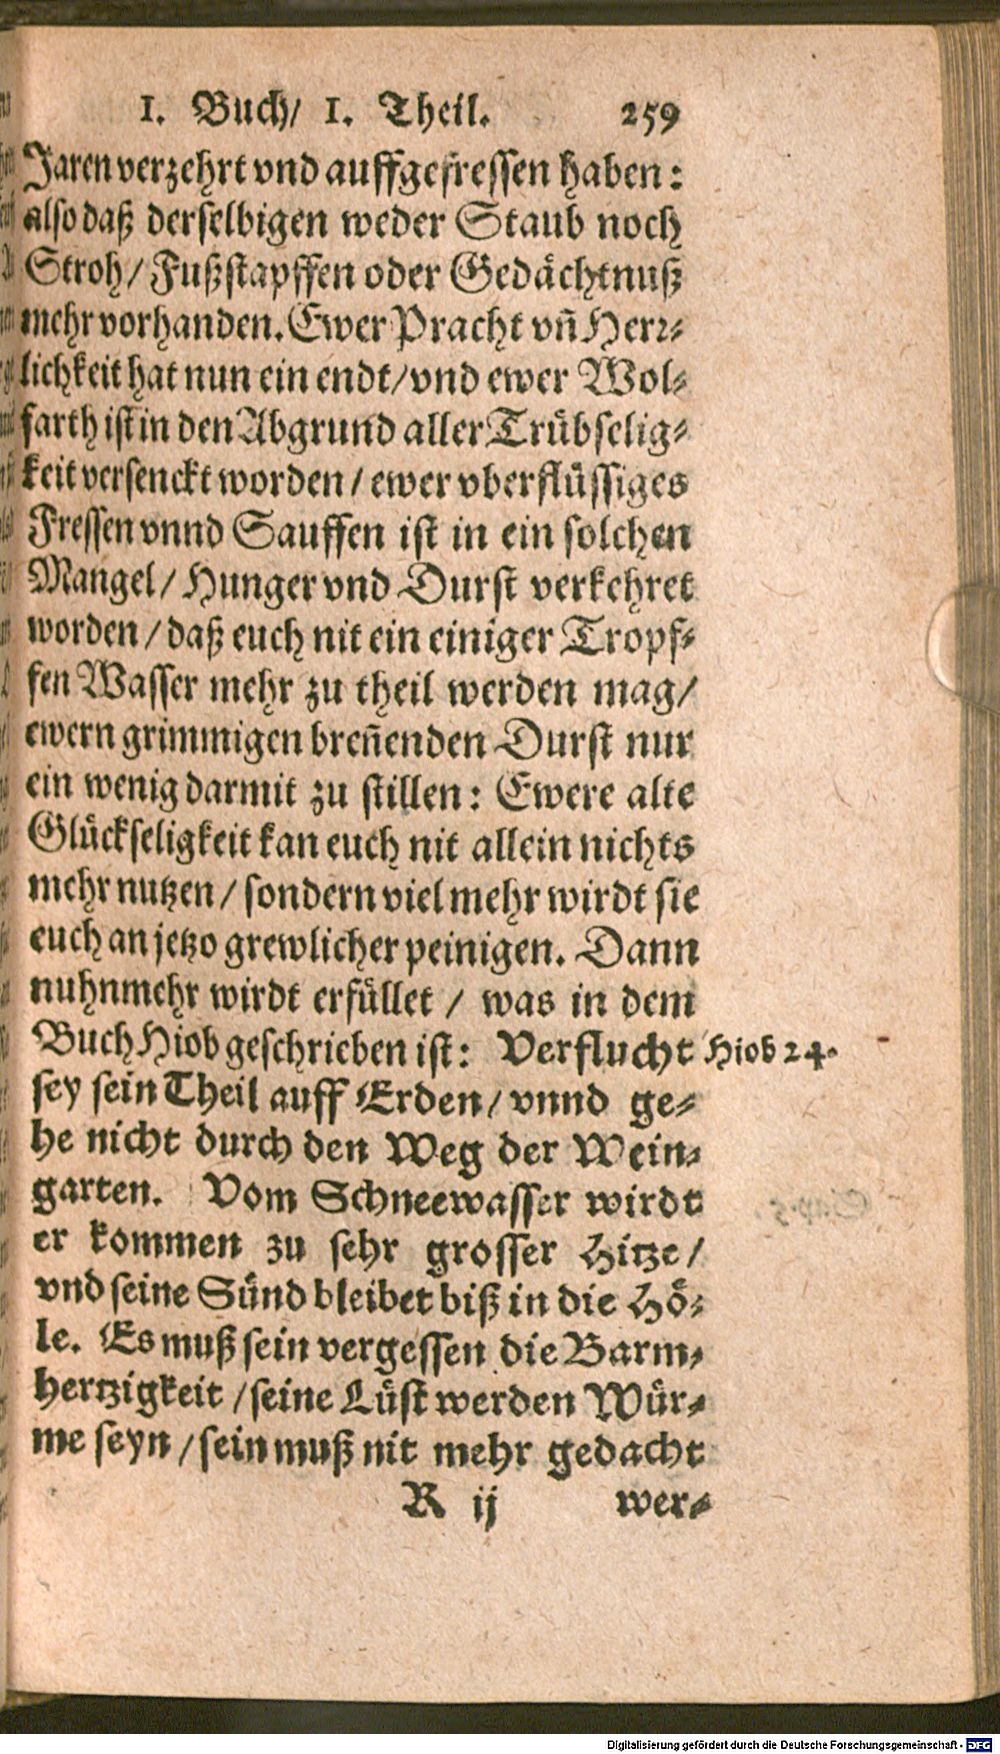 1. Buch/ 1. Theil. 259
Jaren verzehrt vnd auffgefressen haben:
also daß derselbigen weder Staub noch
Stroh/ Fußstapffen oder Gedächtnuß
mehr vorhanden. Ewer Pracht vñ Herr-
lichkeit hat nun ein endt/ vnd ewer Wol-
farth ist in den Abgrund aller Trübselig-
keit versenckt worden/ ewer vberflüssiges
Fressen vnnd Sauffen ist in ein solchen
Mangel/ Hunger vnd Durst verkehret
worden/ daß euch nit ein einiger Tropf-
fen Wasser mehr zu theil werden mag/
ewern grimmigen breñenden Durst nur
ein wenig darmit zu stillen: Ewere alte
Glückseligkeit kan euch nit allein nichts
mehr nutzen/ sondern viel mehr wirdt sie
euch an jetzo grewlicher peinigen. Dann
nuhnmehr wirdt erfüllet/ was in dem
Buch Hiob geschrieben ist: Verflucht Hiob 24.
sey sein Theil auff Erden/ vnnd ge-
he nicht durch den Weg der Wein-
garten. Vom Schneewasser wirdt
er kommen zu sehr grosser Hitze/
vnd seine Sünd bleibet biß in die Hö-
le. Es muß sein vergessen die Barm-
hertzigkeit/ seine Lüst werden Wür-
me seyn/ sein muß nit mehr gedacht
R ij wer-
Digitalisierung gefördert durch die Deutsche Forschungsgemeinschaft - DFG